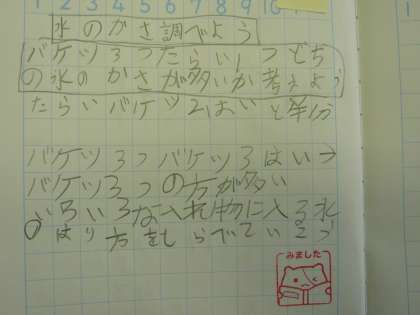 1 2 3 4 5 6 7 8 9 10
水のかさ調べよう
バケツ3つたらい1つどち
の水のかさが多いか考えよう
たらいバケツ2はいと半分
バケツ3つバケツ3はい→
バケツ3つの方が多い
いろいろな入れ物に入る水
のはかり方をしらべていこう
みました